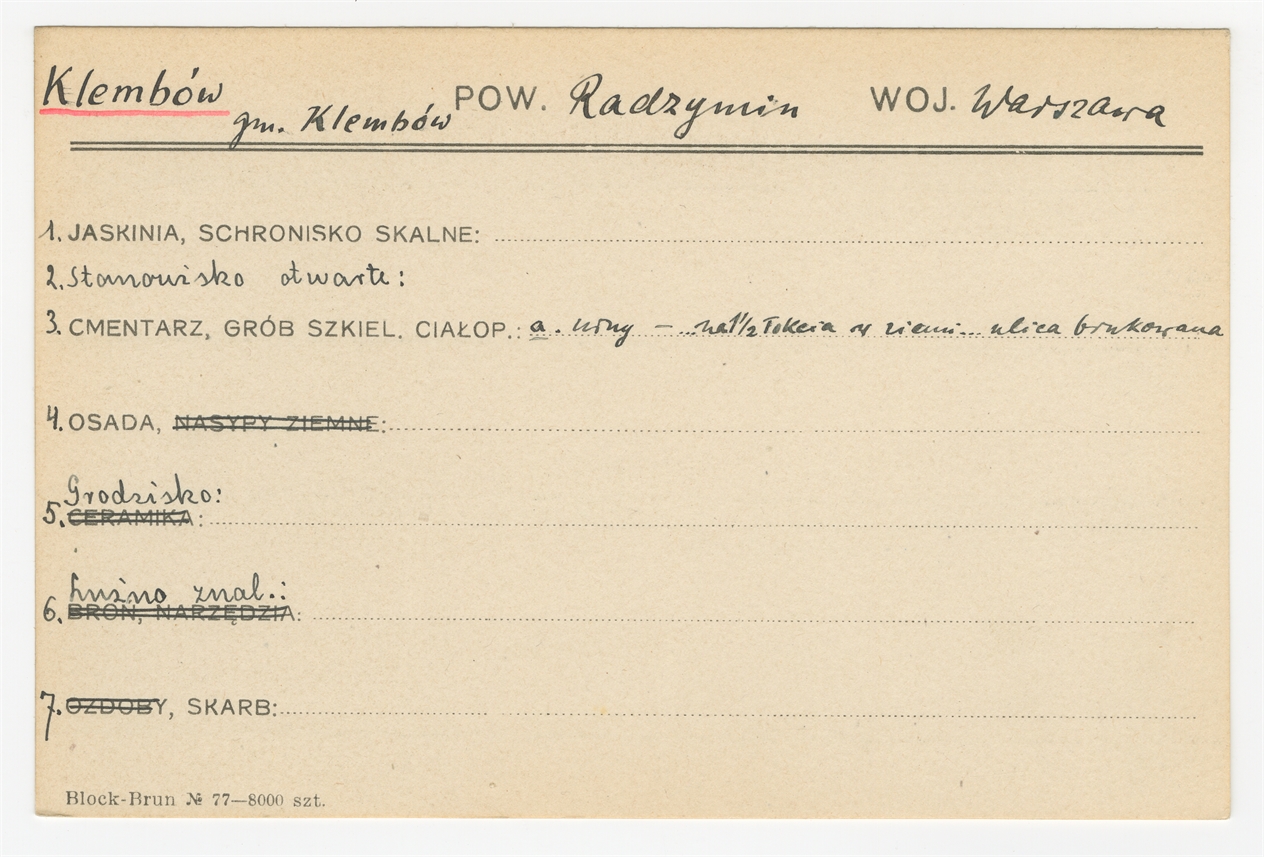 Klembów gm. Klembów POW. Radzymin WOJ. Warszawa
1. JASKINIA, SCHRONISKO SKALNE:
2. Stanowisko otwarte:
3. CMENTARZ, GRÓB SZKIEL. CIAŁOP.: a. – ...na 1½ łokcia w ziemi... ulica brukowana
4. OSADA, NASYPY ZIEMNE:
Grodzisko:
5. CERAMIKA:
Luźno znal.:
6. BROŃ, NARZĘDZIA:
7. OZDOBY, SKARB:
Block-Brun № 77—8000 szt.